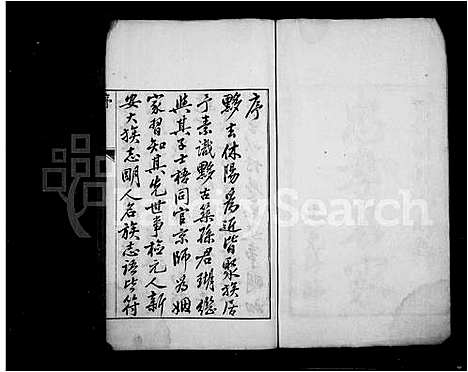 序
黟去休陽爲近皆聚族居
予素識黟古築孫君瑚繼
與其子士梧同官京師爲姻
家習知其先世事檢元人新
安大族志明人名族志語皆符
FamilySearch